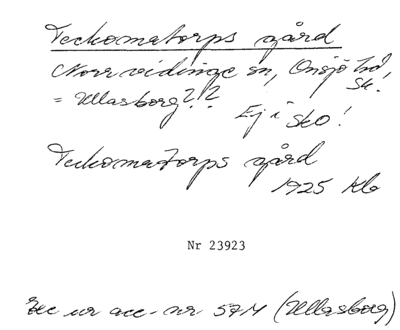 Teckomatorps gård
Norrvidinge sn, Onsjö hd,
Sk.
= Ullasborg?!?
Ej i Sko!
Teckomatorps gård
1925 Kb
Nr 23923
ur acc. nr 574 (Ullasborg)